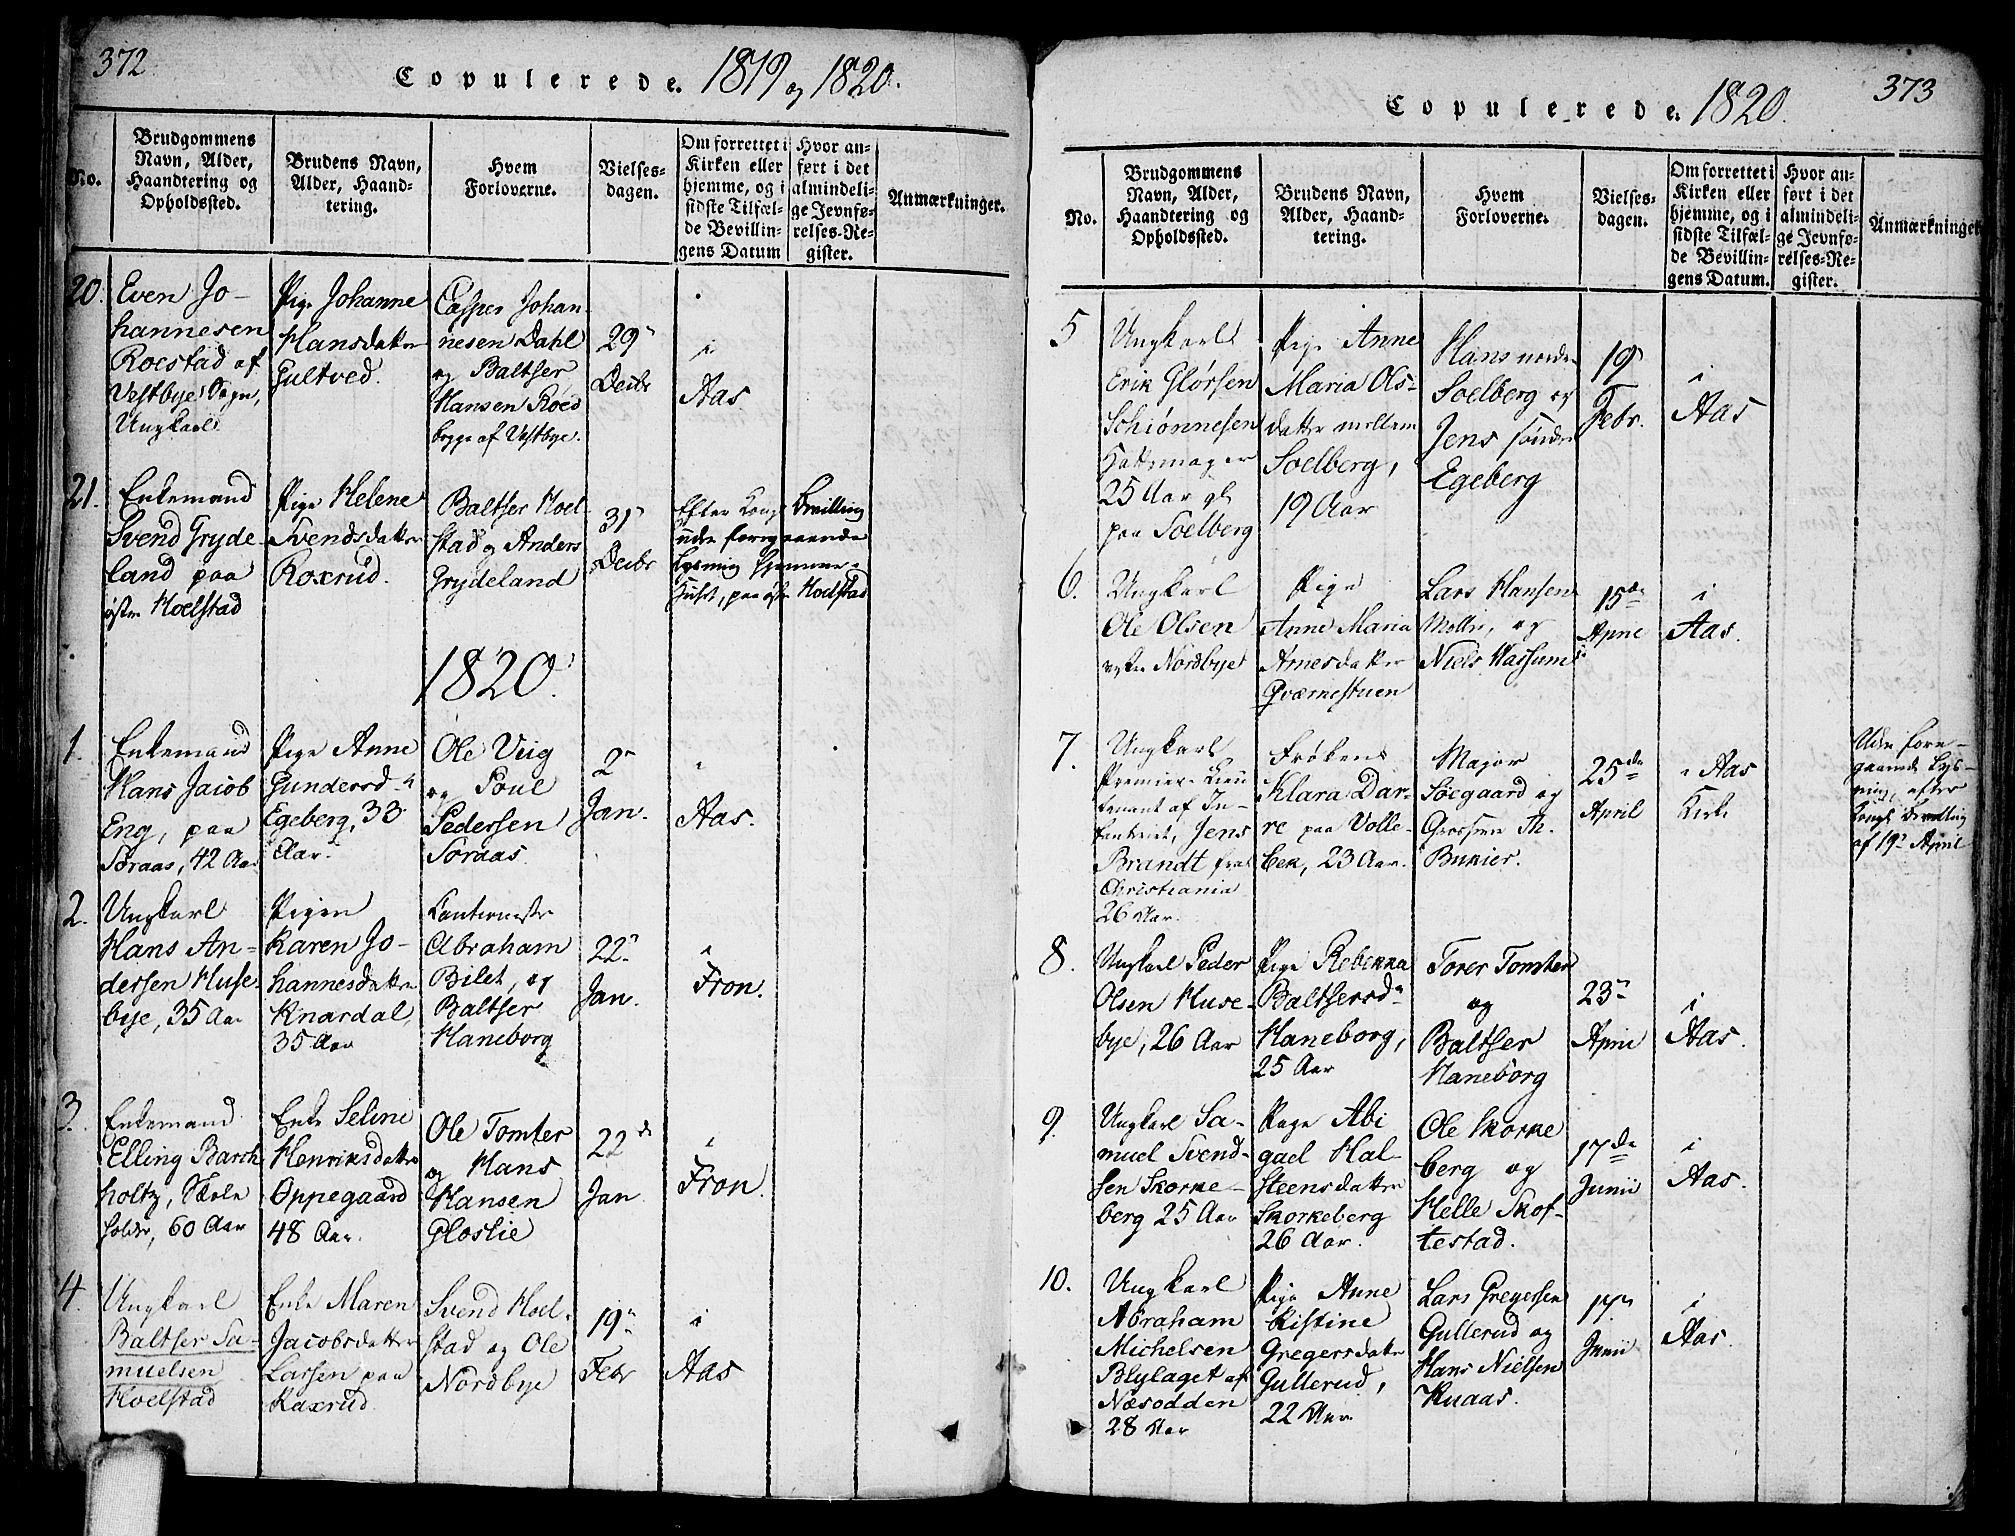 372
Copulerede. 1819 og 1820.
No.
Brudgommens
Navn, Alder,
Haandtering og
Opholdssted.
Brudens Navn,
Alder, Haand-
tering.
Hvem
Forloverne.
Vielses-
dagen.
Om forrettet i
Kirken eller
hjemme, og i
sidste Tilfæl-
de Bevillin-
gens Datum
Hvor an-
ført i det
almindeli-
ge Jevnfø-
relses-Re-
gister.
Anmærkninger.
20.
Even Jo-
hannesen
Roestad af
Vestbye Sogn,
Ungkarl
Pige Johanne
Hansdatter
Gultved.
Casper Johan
nesen Dahl
og Baltser
Hansen Roed
bygge af Vestbye.
29
Decbr
i
Aas
21.
Enkemand
Svend Gryde-
land paa
østre Hoelstad
Pige Helene
Svendsdatter
Roxrud.
Baltser Hoel
stad og Anders
Grydeland
31
Decbr
Efter Kong Bevilling
uden foregaaende
Lysning hjemme i
Huset, paa østre Hoelstad
1820.
1.
Enkemand
Hans Jacob
Eng, paa
Soraas, 42 Aar
Pige Anne
Gundersd
Egeberg, 33
Aar.
Ole Viig
og Poul
Pedersen
Soraas.
2
Jan.
i
Aas.
2.
Ungkarl
Hans An-
dersen Huse-
bye, 35 Aar
Pigen
Karen Jo-
hannesdatter
Knardal,
35 Aar
Abraham
Bilet, og
Baltser
Haneborg
22
Jan.
i
Fron.
3.
Enkemand
Elling Barch
holtz,
60 Aar
Enke Seline
Henriksdatter
Oppegaard
48 Aar.
Ole Tomter
og Hans
Hansen
Gloslie
22 d
Jan
i
Fron.
4.
Ungkarl
Baltser Sa-
muelsen
Hoelstad
Enke Maren
Jacobsdatter
Larsen paa
Raxrud
Svend Hoel-
stad og Ole
Nordbye
19
Febr
i
Aas
373
Copulerede. 1820.
No.
Brudgommens
Navn, Alder,
Haandtering og
Opholdssted.
Brudens Navn,
Alder, Haand-
tering.
Hvem
Forloverne.
Vielses-
dagen.
Om forrettet i
Kirken eller
hjemme, og i
sidste Tilfæl-
de Bevillin-
gens Datum.
Hvor an-
ført i det
almindeli-
ge Jevnfø-
relses-Re-
gister.
Anmærkninger
5
Ungkarl
Erik Glørsen
Schiønnesen
Hattemager
25 Aar gl
paa Soelberg
Pige Anne
Maria Ols-
datter mellem
Soelberg,
19 Aar
Hans nordre
Soelberg og
Jens søndre
Egeberg
19
Febr.
i
Aas
6.
Ungkarl
Ole Olsen
vestre Nordbye
Pige
Anne Maria
Arnesdatter
Qværnestuen
Lars Hansen
Moltri, og
Niels Hassum
15de
April
i
Aas.
7.
Ungkarl
Premier-Lieu
tenant af In-
fanteriet, Jens
Brandt fra
Christiania
26 Aar.
Frøken
Klara Dar-
re paa Volle-
bek, 23 Aar.
Major
Søegaard og
Th.
Bunier.
25de
April
i Aas
Kirke
Uden fore-
gaaende Lys-
ning, efter
Kongl. Bevilling
af 19 April
8.
Ungkarl Peder
Olsen Huse-
bye, 26 Aar
Pige Rebekka
Baltsersd
Haneborg,
25 Aar
Torer Tomter
og
Baltser
Haneborg
23
April
i
Aas.
9.
Ungkarl Sa-
muel Svend-
sen Skorke-
berg 25 Aar
Pige Abi
gael Hal-
steensdatter
Skorkeberg
26 Aar.
Ole Skorke
berg og
Helle Skof-
testad.
17de
Junii
i
Aas.
10.
Ungkarl
Abraham
Michelsen
Blylaget af
Næsodden
28 Aar
Pige Anne
Kistine
Gregersdatr
Gullerud,
22 Aar
Lars Gregersen
Gullerud og
Hans Nielsen
Knaas.
17
Junii
i
Aas.